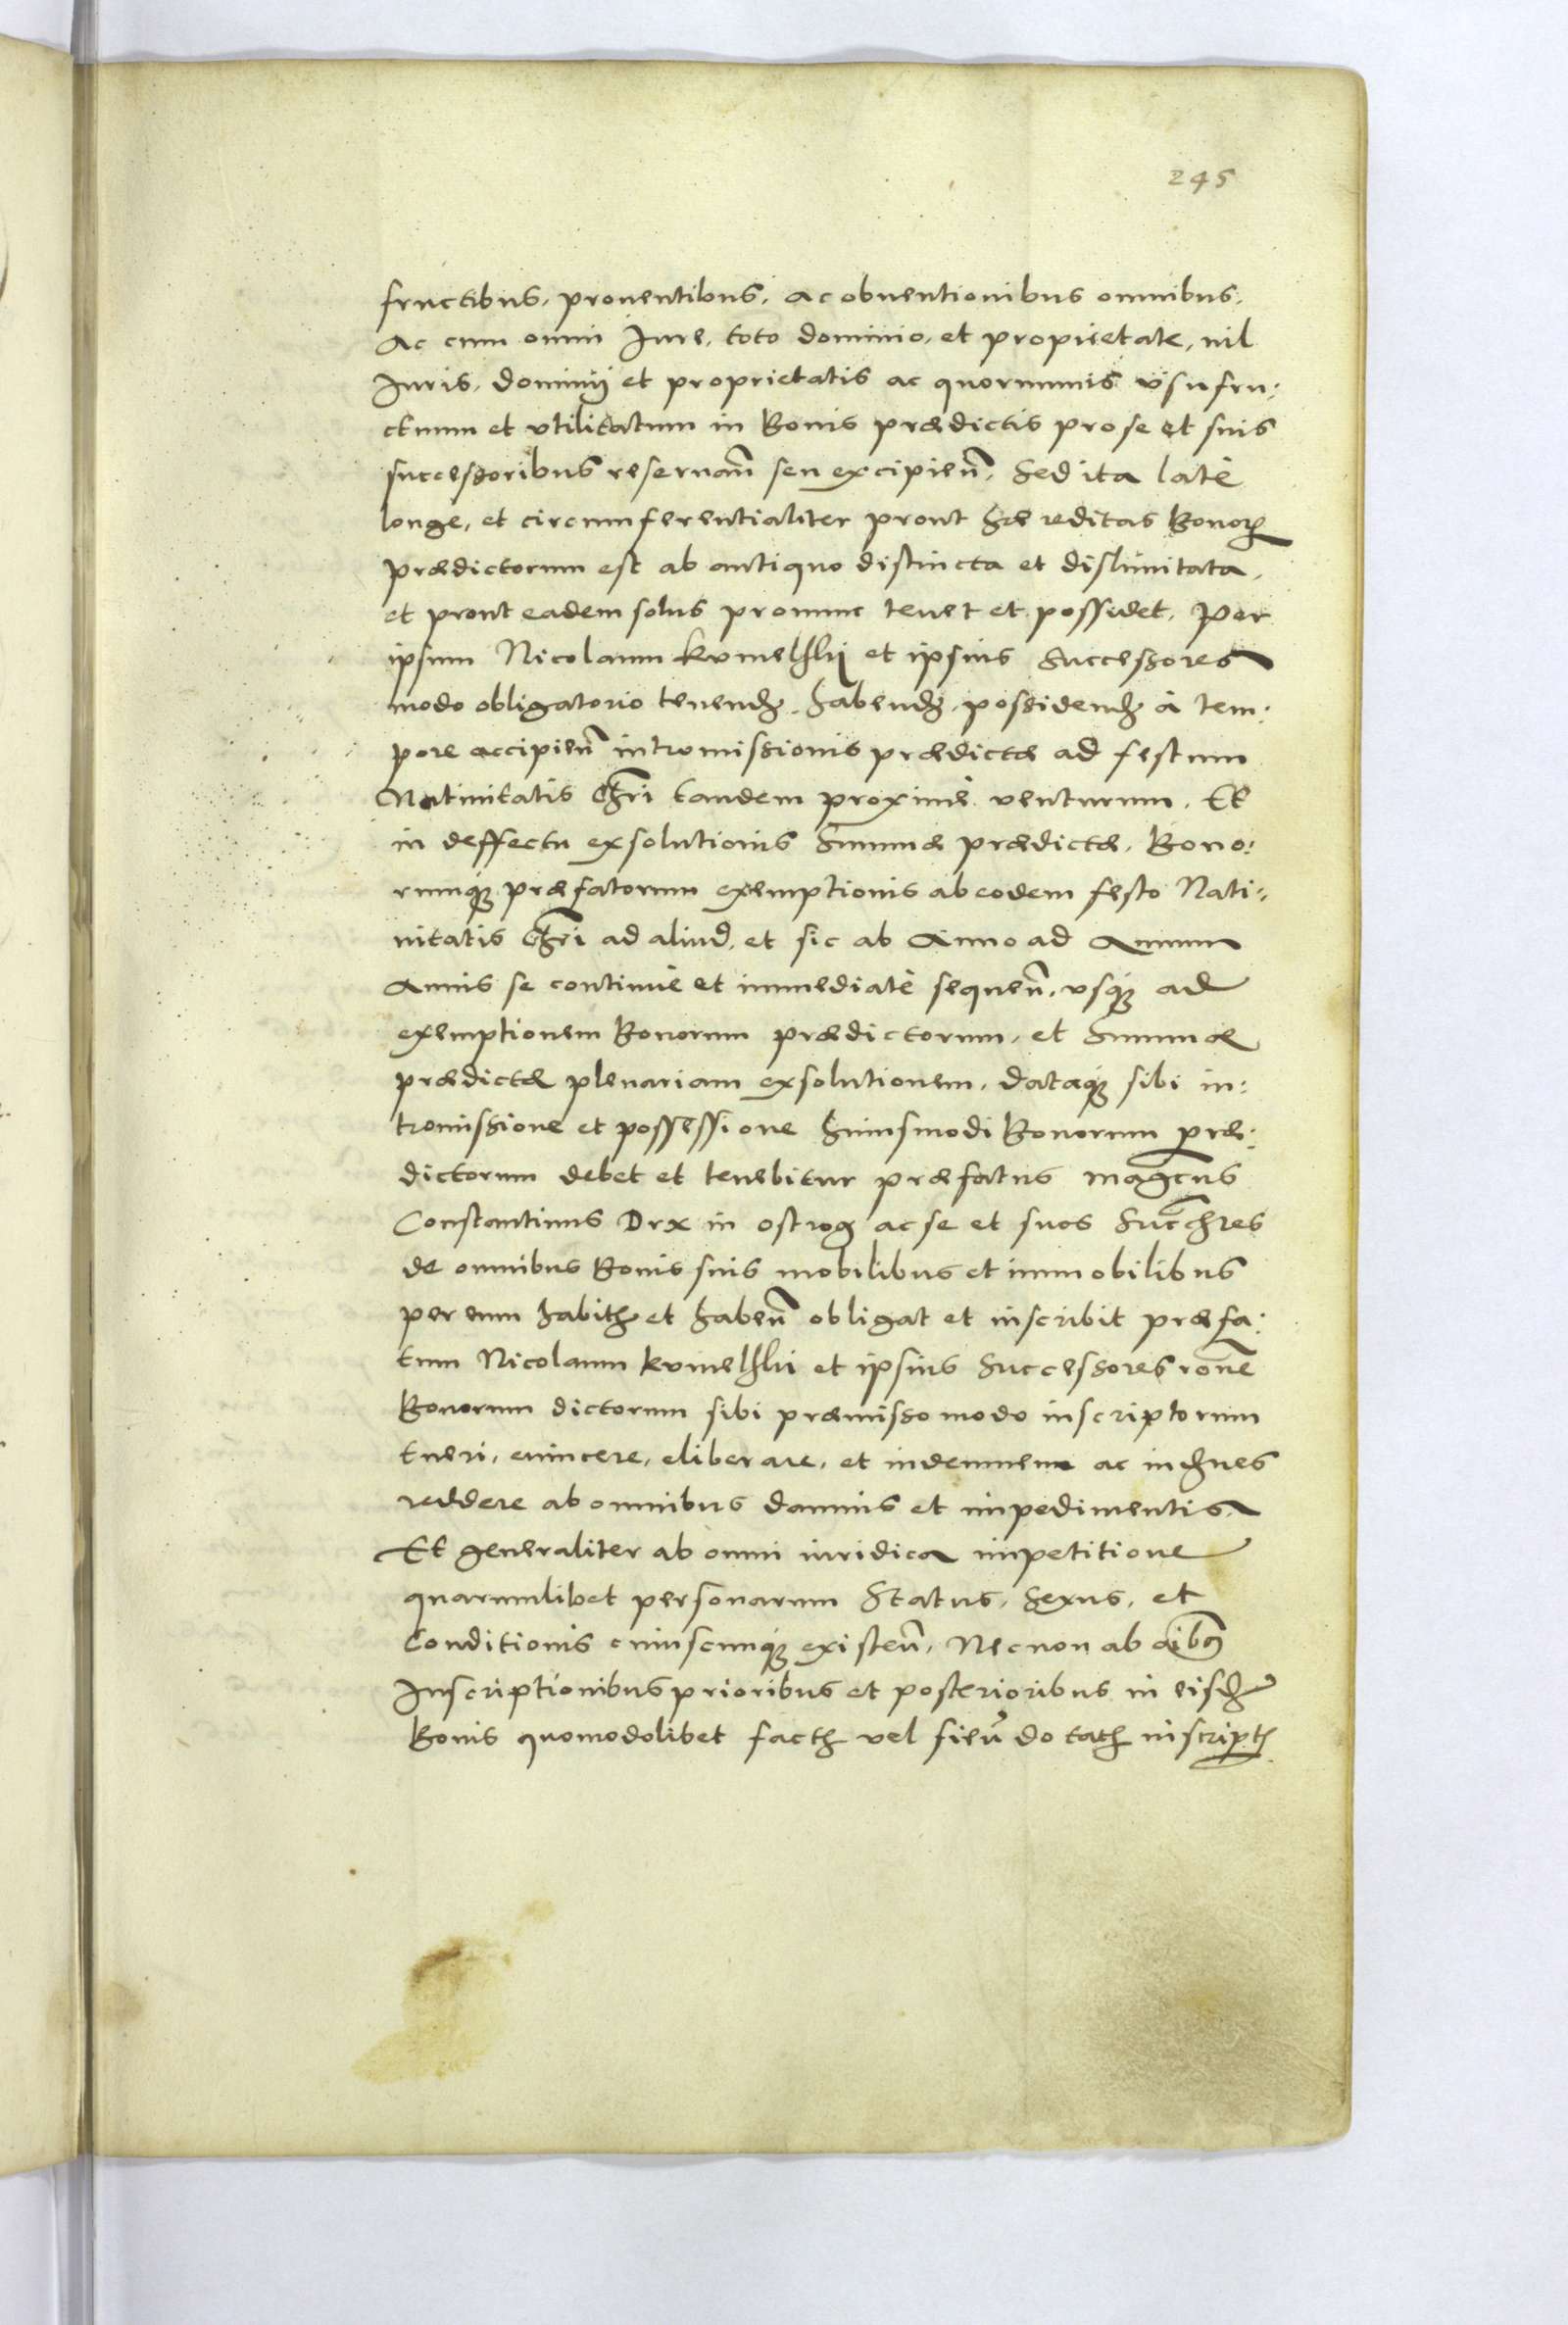 245
fructibus, prouentibus, ac obuentionibus omnibus,
Ac cum omni Iure, toto dominio, et proprietate, nil
Iuris, dominij et proprietatis ac quorumuis vsufru:
ctuum et vtilitatum in Bonis prædictis pro se et suis
successoribus reseruan̄ seu excipien̄, Sed ita latè
longe, et circumferentialiter prout hæreditas Bonorꝝ
prædictorum est ab antiquo distincta et dislimitata,
et prout eadem solus pronunc tenet et possidet, Per
ipsum Nicolaum et ipsius Successores
modo obligatorio tenenđ, habenđ, possidenđ à tem:
pore accipien̄ intromissionis prædictæ ad festum
Natiuitatis Chr̄i tandem proximè venturum, Et
in deffectu exsolutionis Summæ prædictæ, Bono:
rumqꝫ præfatorum exemptionis ab eodem festo Nati:
uitatis Chr̄i ad aliud, et sic ab Anno ad Annum
Annis se continuè et immediatè sequen̄, vsqꝫ ad
exemptionem Bonorum prædictorum, et Summæ
prædictæ plenariam exsolutionem, dataqꝫ sibi in:
tromissione et possessione huiusmodi Bonorum præ:
dictorum debet et tenebitur præfatus Magn̄cus
Constantinus Dux in Ostrog ac se et suos Succ̄hres
de omnibus Bonis suis mobilibus et immobilibus
per eum habitꝭ et haben̄ obligat et inscribit præfa:
tum Nicolaum et ipsius Successores ron̄e
Bonorum dictorum sibi præmisso modo inscriptorum
tueri, euincere, eliberare, et indemnem ac indēnes
reddere ab omnibus damnis et impedimentis,
Et generaliter ab omni iuridica impetitione
quarumlibet personarum Status, Sexus, et
Conditionis cuiuscunqꝫ existen̄, Necnon ab oībus
Inscriptionibus prioribus et posterioribus in eisđ
Bonis quomodolibet factꝭ vel fien̄ dotatꝭ inscriptꝭ